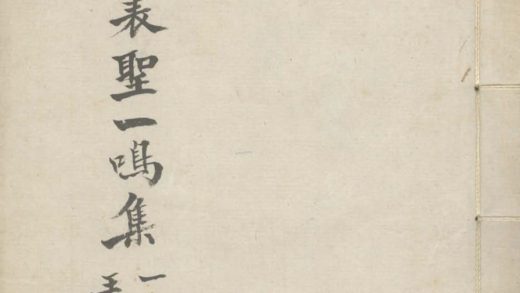 表聖一鳴集
一